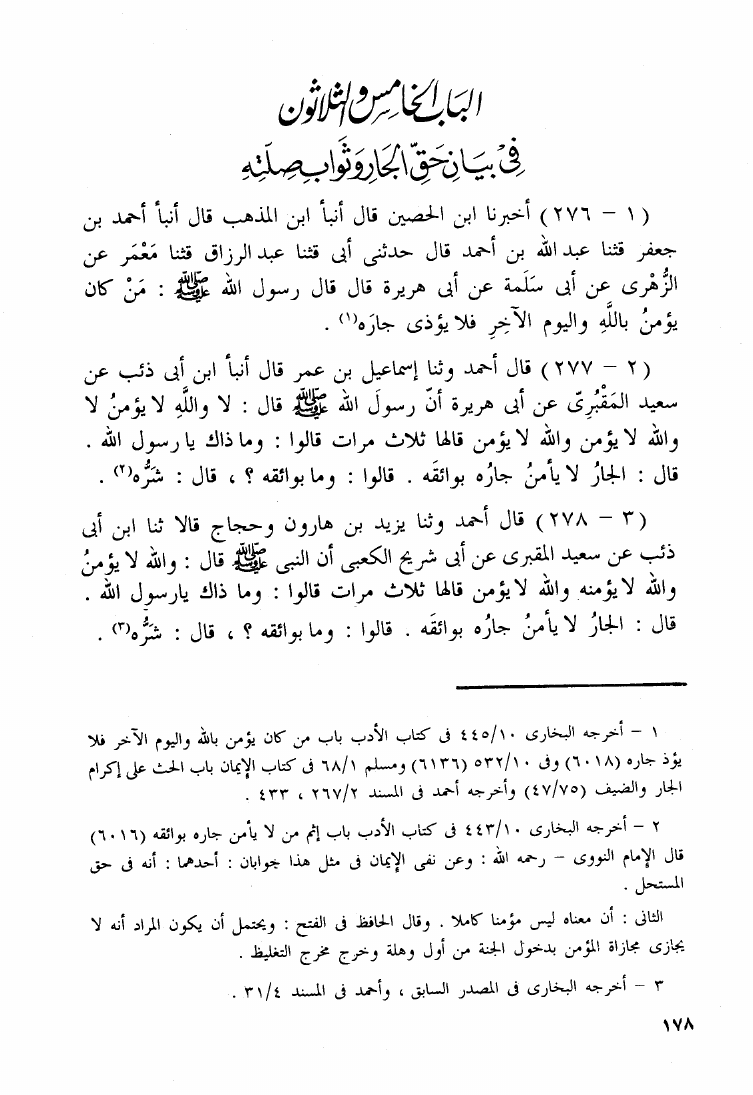 الباب الخامس والثلاثون
فِي بَيَانِ حَقِّ الجَارِ وَثَوَابِ صِلَتِهِ
( ١ – ٢٧٦ ) أخبرنا ابن الحصين قال أنبأ ابن المذهب قال أنبأ أحمد بن
جعفر قثنا عبد الله بن أحمد قال حدثنى أبى قثنا عبد الرزاق قثنا مَعْمَر عن
الزُّهْرى عن أبى سَلَمة عن أبى هريرة قال قال رسول الله ﷺ : مَنْ كان
يؤمنُ باللَّهِ واليوم الآخِرِ فلا يؤذى جارَه(١) .
( ٢ – ٢٧٧ ) قال أحمد وثنا إسماعيل بن عمر قال أنبأ ابن أبى ذئب عن
سعيد المَقْبُرِىّ عن أبى هريرة أنّ رسولَ الله ﷺ قال : لا واللَّهِ لا يؤمنُ لا
والله لا يؤمن والله لا يؤمن قالها ثلاث مرات قالوا : وما ذاك يا رسول الله .
قال : الجارُ لا يأمنُ جارُه بوائقَه . قالوا : وما بوائقه ؟ ، قال : شَرُّه(٢) .
( ٣ – ٢٧٨ ) قال أحمد وثنا يزيد بن هارون وحجاج قالا ثنا ابن أبى
ذئب عن سعيد المقبرى عن أبى شريح الكعبى أن النبى ﷺ قال : والله لا يؤمنُ
والله لا يؤمنه والله لا يؤمن قالها ثلاث مرات قالوا : وما ذاك يارسول الله .
قال : الجارُ لا يأمنُ جارُه بوائقَه . قالوا : وما بوائقه ؟ ، قال : شَرُّه(٣) .
١ – أخرجه البخارى ٤٤٥/١٠ فى كتاب الأدب باب من كان يؤمن بالله واليوم الآخر فلا
يؤذ جاره (٦٠١٨) وفى ٥٣٢/١٠ (٦١٣٦) ومسلم ٦٨/١ فى كتاب الإيمان باب الحث على إكرام
الجار والضيف (٤٧/٧٥) وأخرجه أحمد فى المسند ٢٦٧/٢ ، ٤٣٣ .
٢ – أخرجه البخارى ٤٤٣/١٠ فى كتاب الأدب باب إثم من لا يأمن جاره بوائقه (٦٠١٦)
قال الإمام النووى – رحمه الله : وعن نفى الإيمان فى مثل هذا جوابان : أحدهما : أنه فى حق
المستحل .
الثانى : أن معناه ليس مؤمنا كاملا . وقال الحافظ فى الفتح : ويحتمل أن يكون المراد أنه لا
يجازى مجازاة المؤمن بدخول الجنة من أول وهلة وخرج مخرج التغليظ .
٣ – أخرجه البخارى فى المصدر السابق ، وأحمد فى المسند ٣١/٤ .
١٧٨